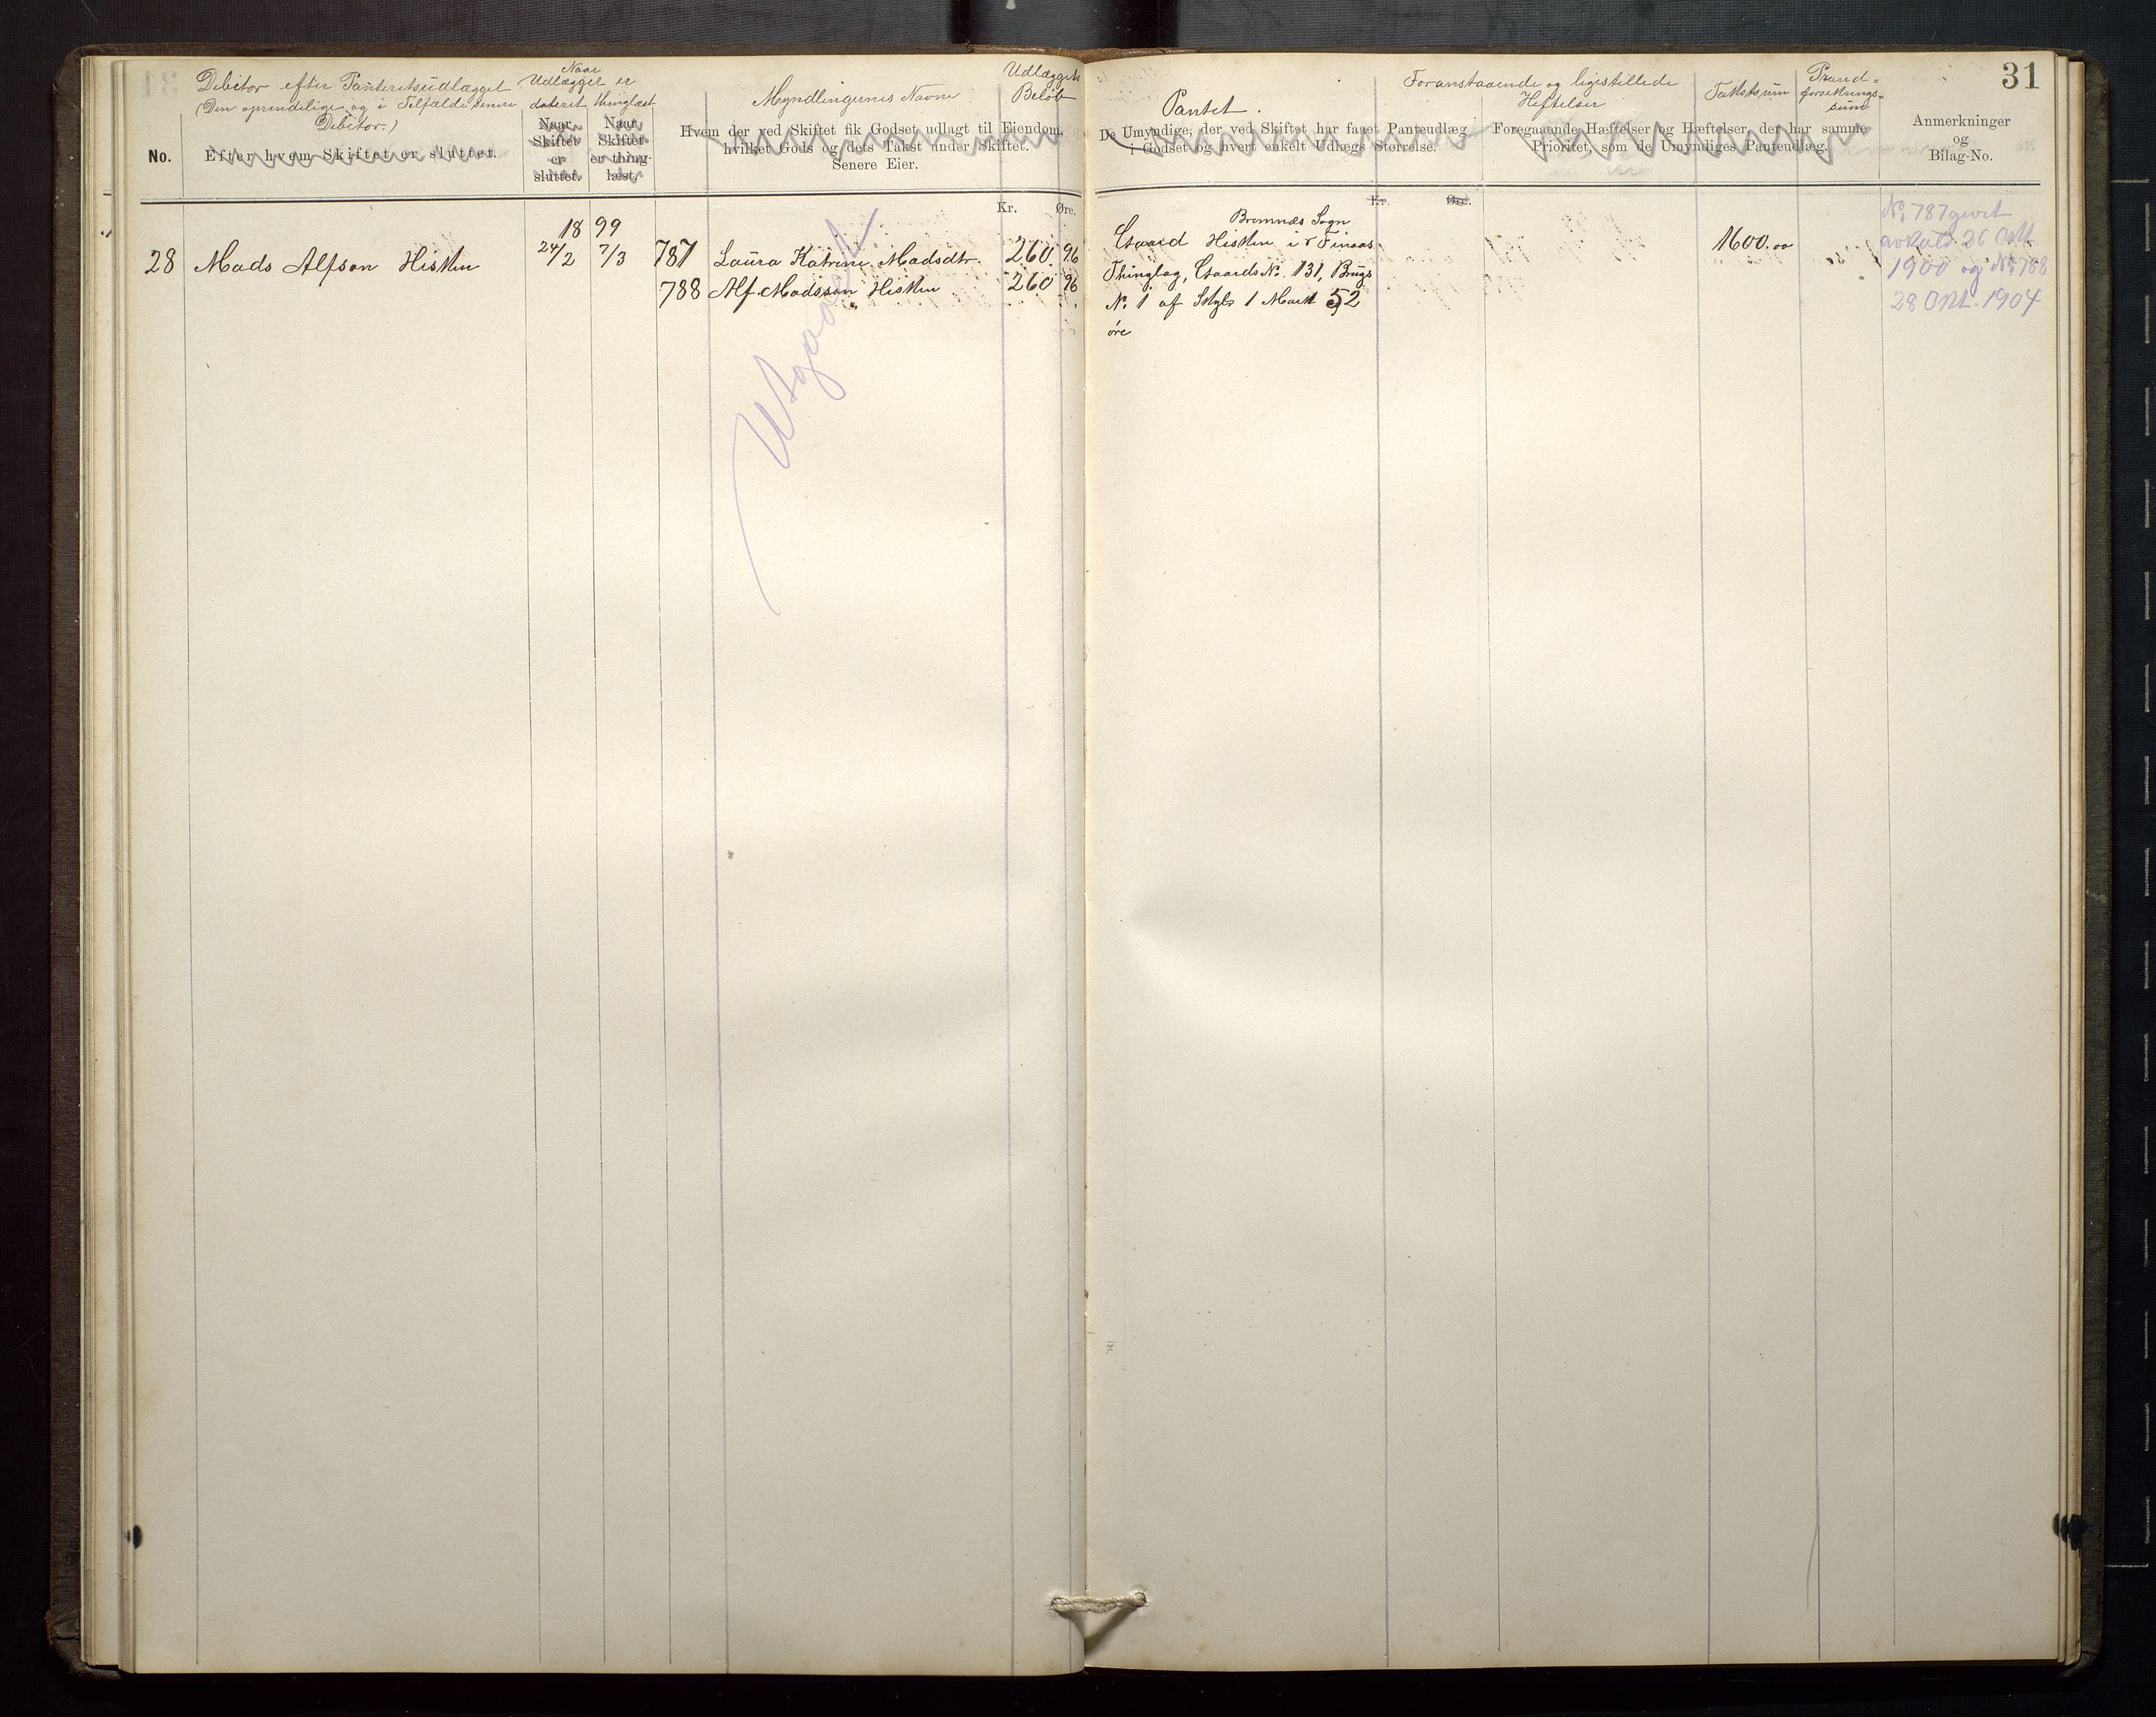 31
Debitor efter Panteretsudlægget
(Den oprindelige og i Tilfælde senere
Debitor.)
No.
Efter hvem Skiftet er sluttet.
Naar
Udlægget er
dateret thinglæst
Naar
Skiftet
er
sluttet.
Naar
Skiftet
er thing-
læst.
Myndlingernes Navne
Hvem der ved Skiftet fik Godset udlagt til Eiendom,
hvilket Gods og dets Takst under Skiftet.
Senere Eier.
Udlæggets
Beløb
Pantet.
De Umyndige, der ved Skiftet har faaet Panteudlæg
i Godset og hvert enkelt Udlægs Størrelse.
Foranstaaende og ligestillede
Heftelser
Foregaaende Hæftelser og Hæftelser, der har samme
Prioritet, som de Umyndiges Panteudlæg.
Takstsum
Brand-
forsikrings-
sum
Anmerkninger
og
Bilag-No.
Kr. Øre.
Kr. Øre.
18 99
28 Mads Alfson Hisken 24/2 7/3 787 Laura Katrine Madsdtr. 260. 96
788 Alf Madsson Hisken 260 96
Utgaaet
Bremnæs Sogn
Gaard Hisken i Finaas
Thinglag, Gaards No. 131, Brugs
No. 1 af Skyld 1 Mark 52
øre
1600.00
No. 787 givet
avkald 26 Okt.
1900 og No. 788
28 Okt. 1904